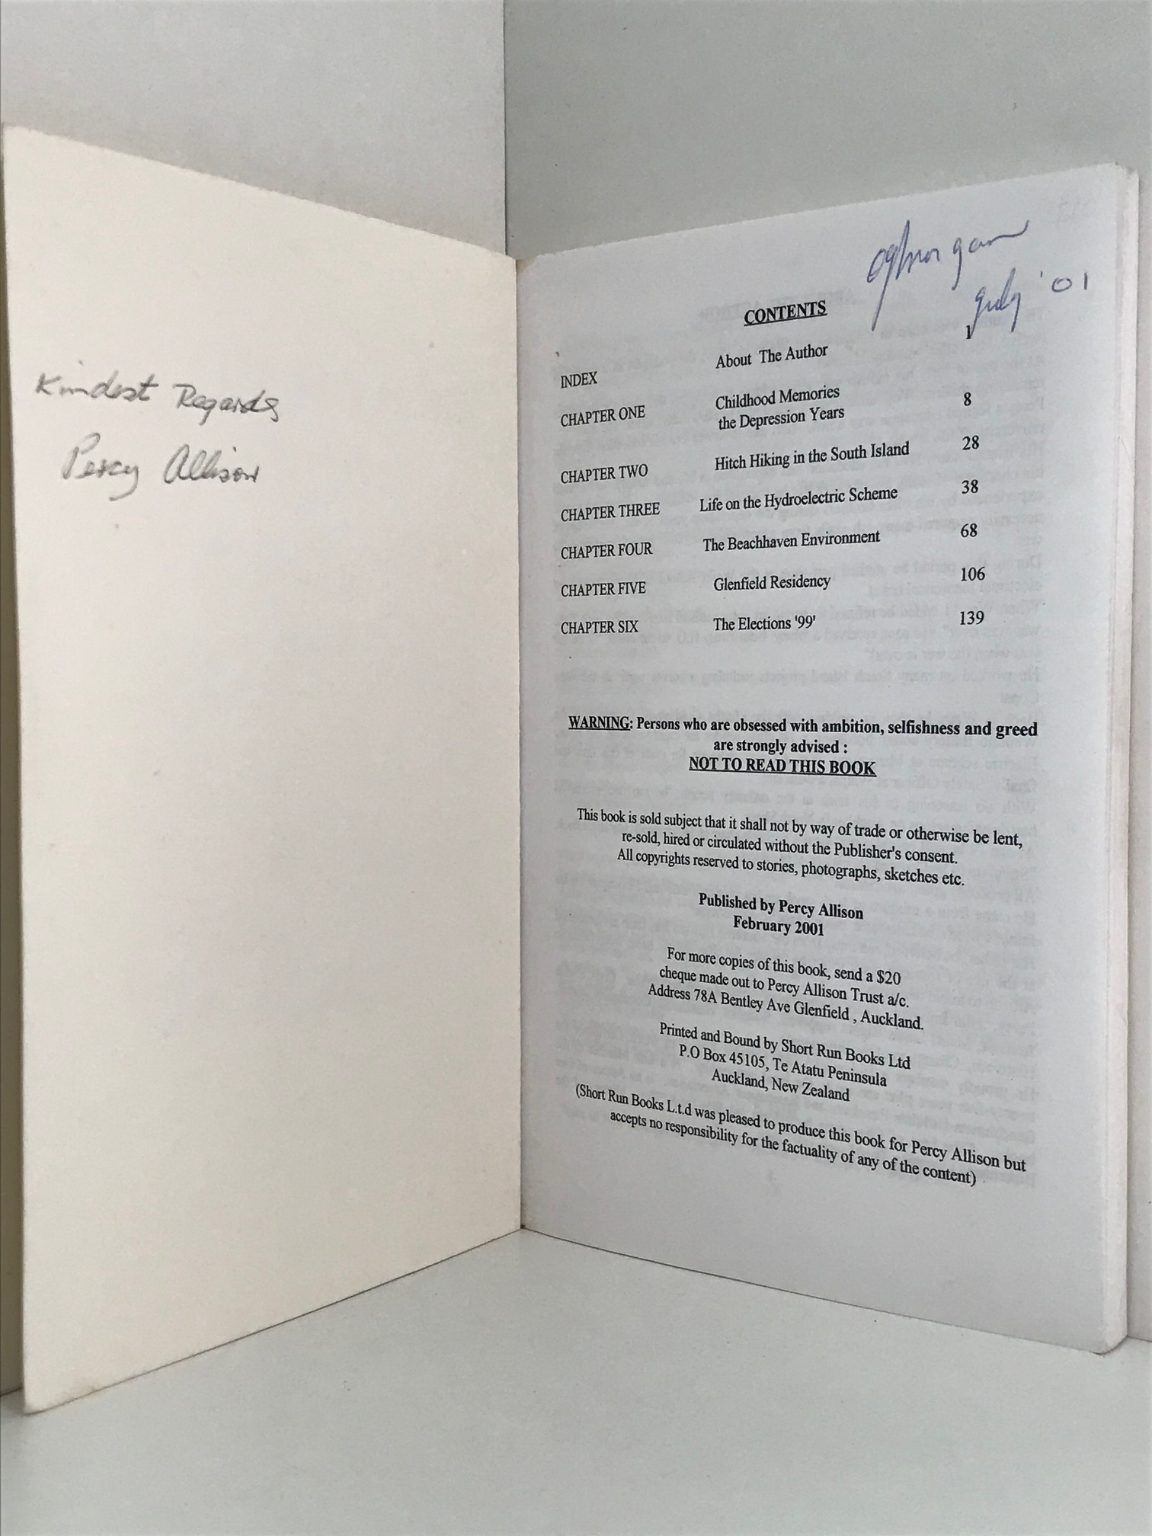 Kindest Regards
Percy Allison
July '01
CONTENTS
INDEX About The Author 1
CHAPTER ONE Childhood Memories
the Depression Years 8
CHAPTER TWO Hitch Hiking in the South Island 28
CHAPTER THREE Life on the Hydroelectric Scheme 38
CHAPTER FOUR The Beachhaven Environment 68
CHAPTER FIVE Glenfield Residency 106
CHAPTER SIX The Elections '99' 139
WARNING: Persons who are obsessed with ambition, selfishness and greed
are strongly advised :
NOT TO READ THIS BOOK
This book is sold subject that it shall not by way of trade or otherwise be lent,
re-sold, hired or circulated without the Publisher's consent.
All copyrights reserved to stories, photographs, sketches etc.
Published by Percy Allison
February 2001
For more copies of this book, send a $20
cheque made out to Percy Allison Trust a/c.
Address 78A Bentley Ave Glenfield , Auckland.
Printed and Bound by Short Run Books Ltd
P.O Box 45105, Te Atatu Peninsula
Auckland, New Zealand
(Short Run Books L.t.d was pleased to produce this book for Percy Allison but
accepts no responsibility for the factuality of any of the content)